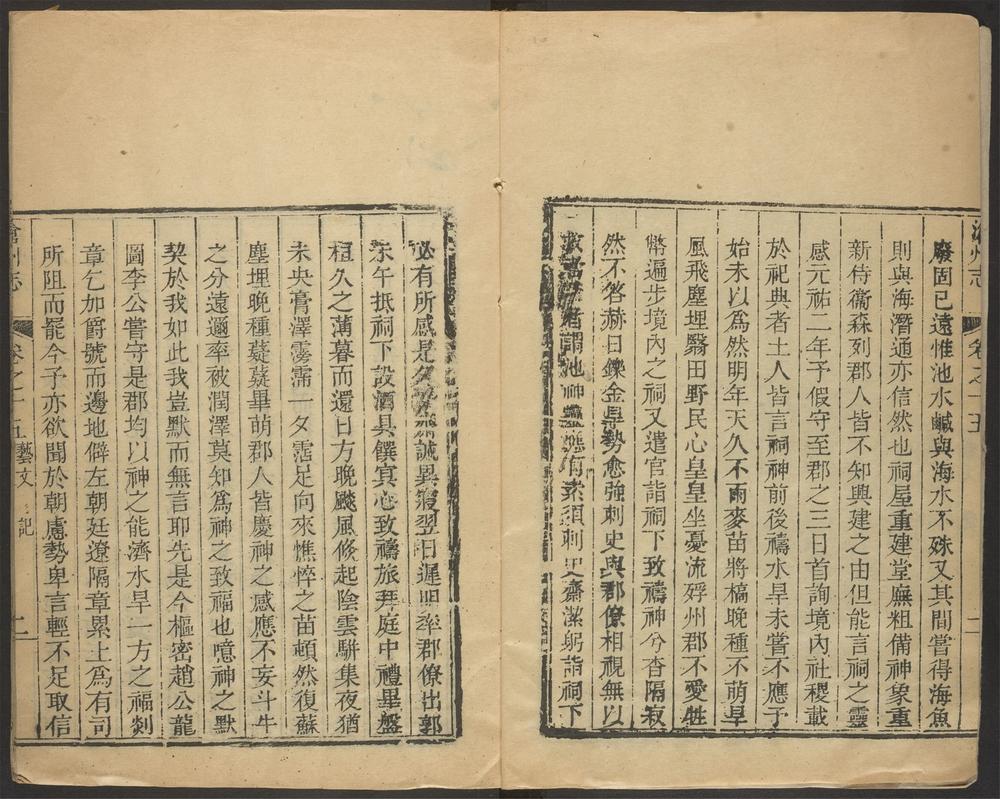 州志 卷之十五 二
廢固已遠惟池水鹹與海水不殊又其間嘗得海魚
則與海潛通亦信然也祠屋重建堂廡粗備神象重
新侍衞森列郡人皆不知興建之由但能言祠之靈
感元祐二年予假守至郡之三日首詢境內社稷載
於祀典者土人皆言祠神前後禱水旱未嘗不應予
始未以爲然明年天久不雨麥苗將槁晚種不萌旱
風飛塵埋翳田野民心皇皇坐憂流殍州郡不愛牲
幣遍步境內之祠又遣官詣祠下致禱神兮杳隔寂
然不答赫日鑠金旱勢愈強刺史與郡僚相視無以
者謂池神靈應有素須刺史齋潔躬詣祠下
必有所感是夕齋誠異寢翌日遲明率郡僚出郭
亭午抵祠下設酒具饌寘心致禱旅拜庭中禮畢盤
桓久之薄暮而還日方晚飈風倐起陰雲駢集夜猶
未央膏澤霶霈一夕霑足向來憔悴之苗頓然復蘇
塵埋晚種蕤蕤畢萌郡人皆慶神之感應不妄斗牛
之分遠邇率被潤澤莫知爲神之致福也噫神之默
契於我如此我豈默而無言耶先是今樞密趙公龍
圖李公嘗守是郡均以神之能濟水旱一方之福剡
章乞加爵號而邊地僻左朝廷遼隔章累上爲有司
所阻而罷今予亦欲聞於朝慮勢卑言輕不足取信
滄州志 卷之十五 藝文 記 二